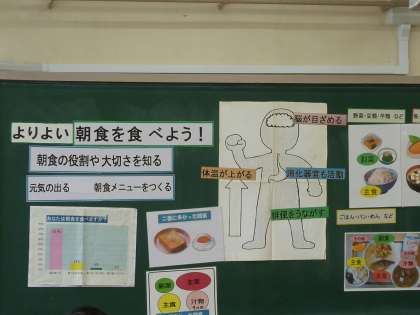 よりよい 朝食を食べよう！
朝食の役割や大切さを知る
元気の出る 朝食メニューをつくる
あなたは朝食を食べますか？
脳が目ざめる
体温が上がる
消化器官も活動
排便をうながす
野菜・豆類・芋類 など
副菜
主食
ごはん・パン・めん など
副菜
主菜
主食
汁物
副菜
主食